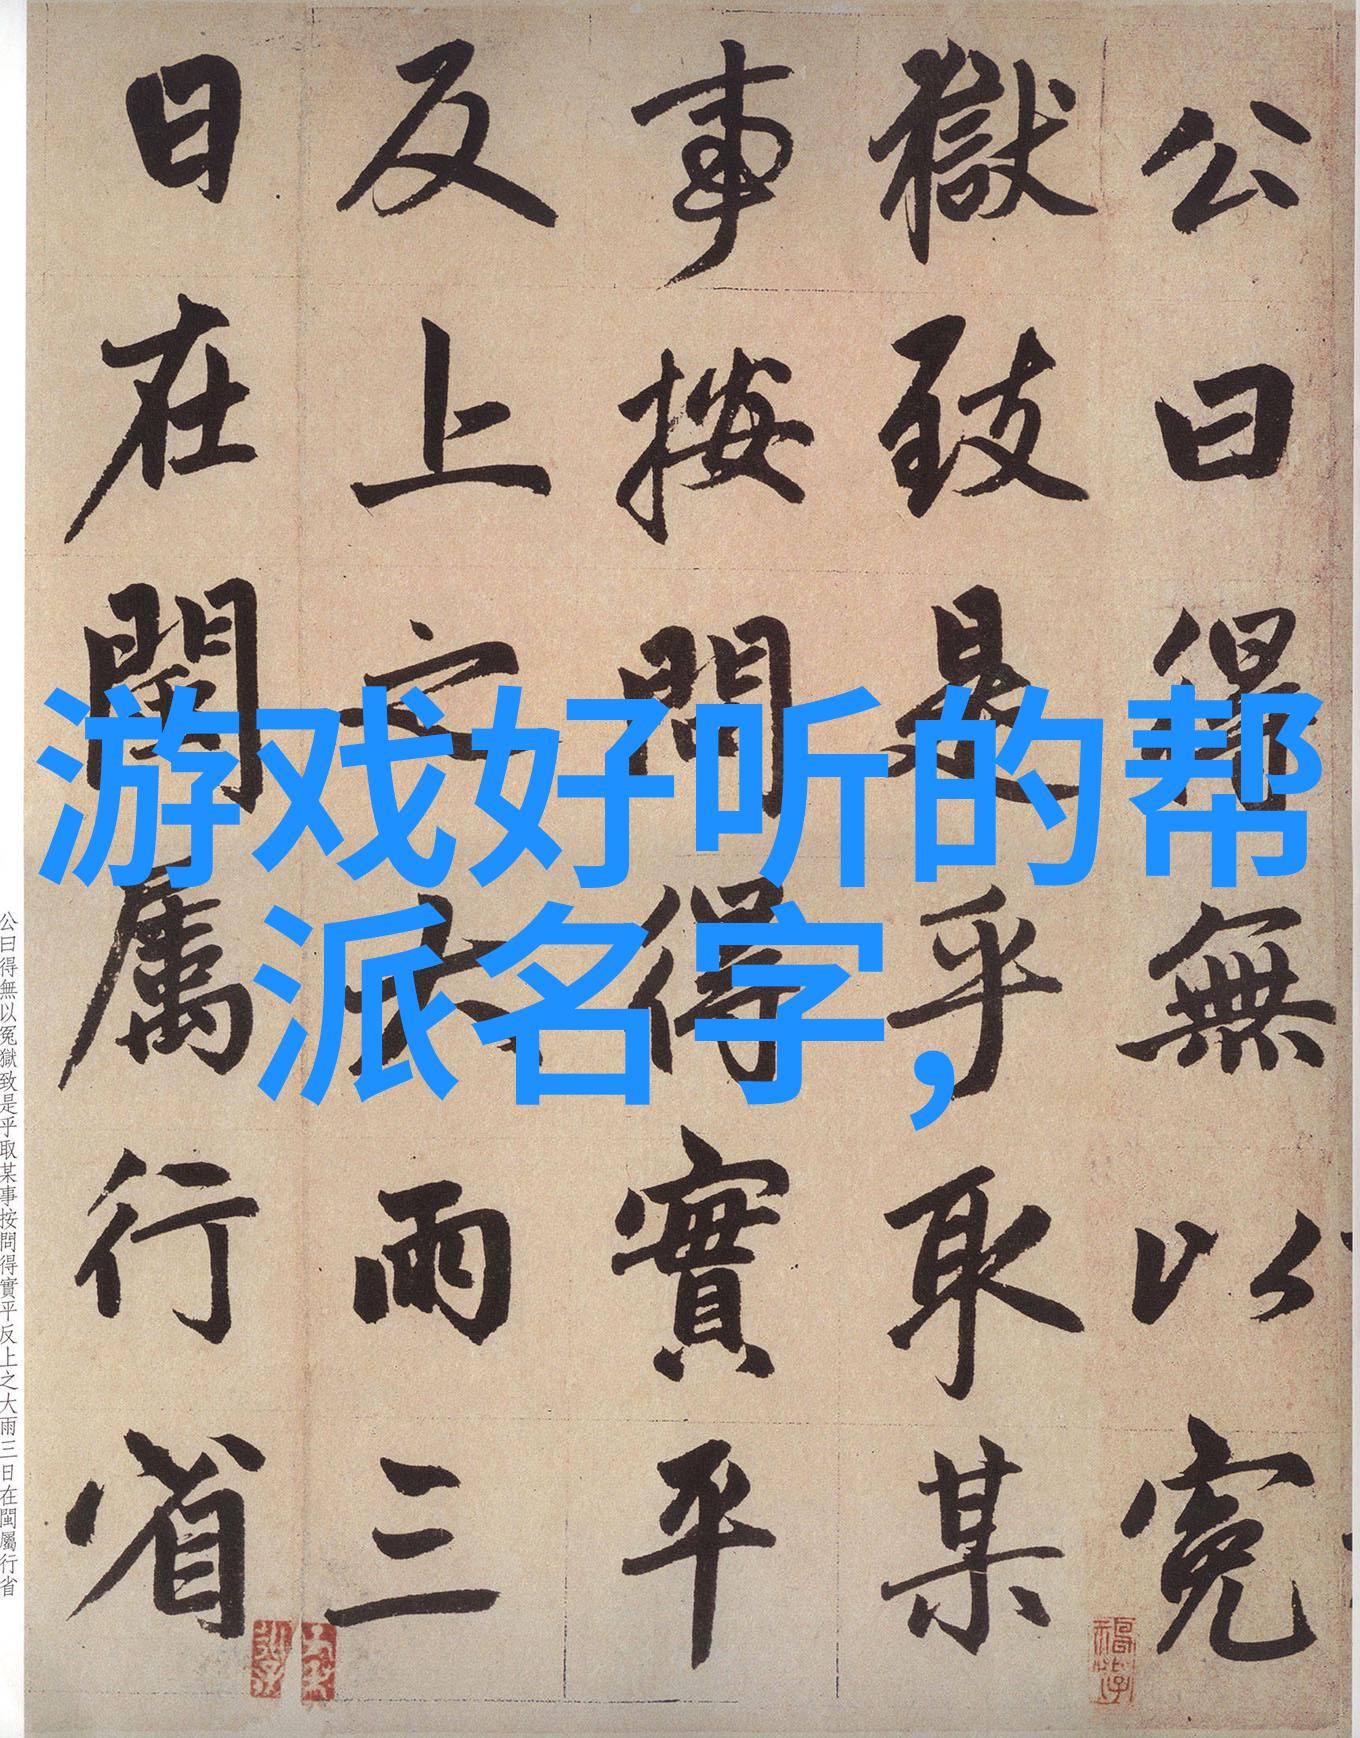 公曰得無以冤
獄致是乎取某
事按問得實平
反上之大雨三
日在閩屬行省
游戏好听的帮
派名字，
公曰得無以冤獄致是乎取某事按問得實平反上之大雨三日在閩屬行省